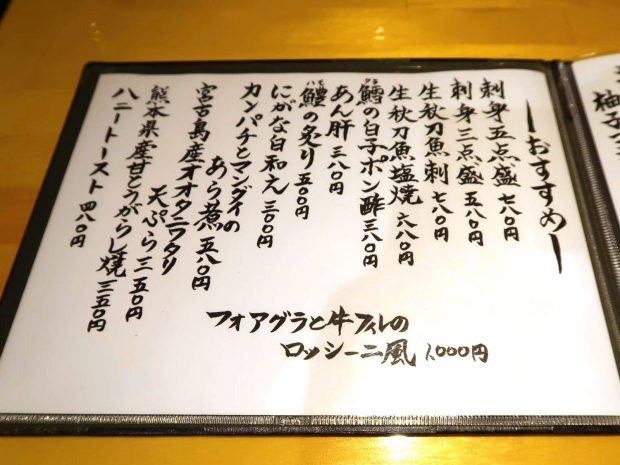 おすすめ
刺身五点盛 七八〇円
刺身三点盛 五八〇円
生秋刀魚刺 七八〇円
生秋刀魚塩焼 六八〇円
鱈の白子ポン酢 三八〇円
タラ
あん肝 三八〇円
鱧の炙り 五〇〇円
ハモ
にがな白和え 三〇〇円
カンパチとマンダイの
あら煮 五八〇円
宮古島産オオタニワタリ
天ぷら 三五〇円
熊本県産甘とうがらし焼 三五〇円
ハニートースト 四八〇円
フォアグラと牛フィレの
ロッシーニ風 1,000円
柚子